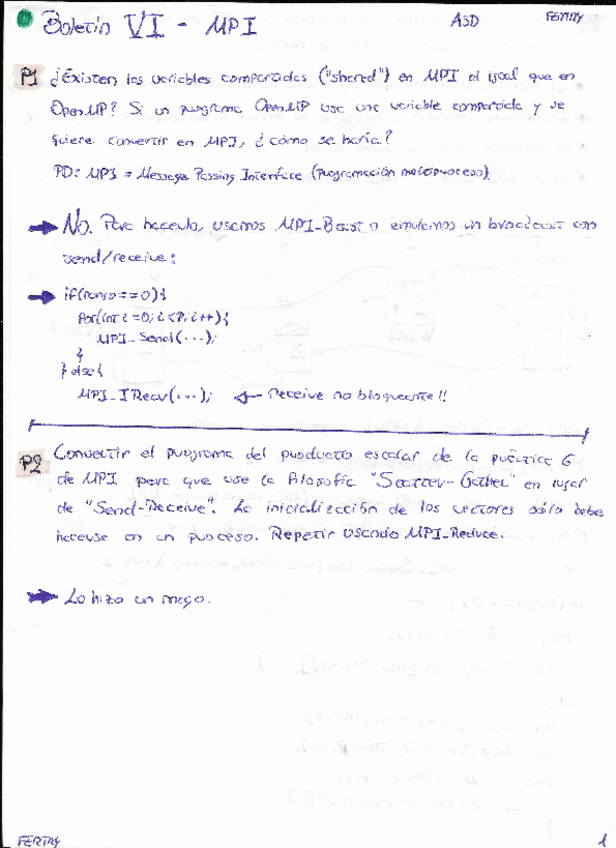 Boletín VI - MPI ASD FERTHY
P1 ¿Existen las variables compartidas ("shared") en MPI al igual que en
OpenMP? Si un programa OpenMP usa una variable compartida y se
quiere convertir en MPI, ¿cómo se haría?
PD: MPI = Message Passing Interface (Programación multiproceso)
No. Para hacerlo, usamos MPI_Bcast o emulamos un broadcast con
send/receive:
if(rango==0){
for(int i=0; i<P; i++){
MPI_Send(...);
}
} else{
MPI_IRecv(...); Receive no bloqueante!!
P2 Convertir el programa del producto escalar de la práctica 6
de MPI para que use la filosofía "Scatter-Gather" en lugar
de "Send-Receive". La inicialización de los vectores sólo debe
hacerse en un proceso. Repetir usando MPI_Reduce.
Lo hizo un mago.
FERTHY 1